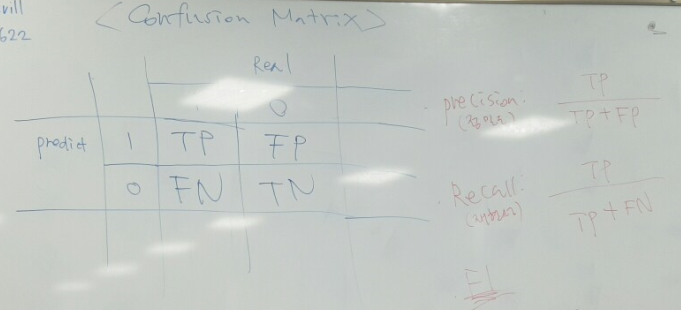 622
< Confusion Matrix >
Real
0
predict 1 TP FP
0 FN TN
precision: TP
TP + FP
Recall: TP
TP + FN
F1